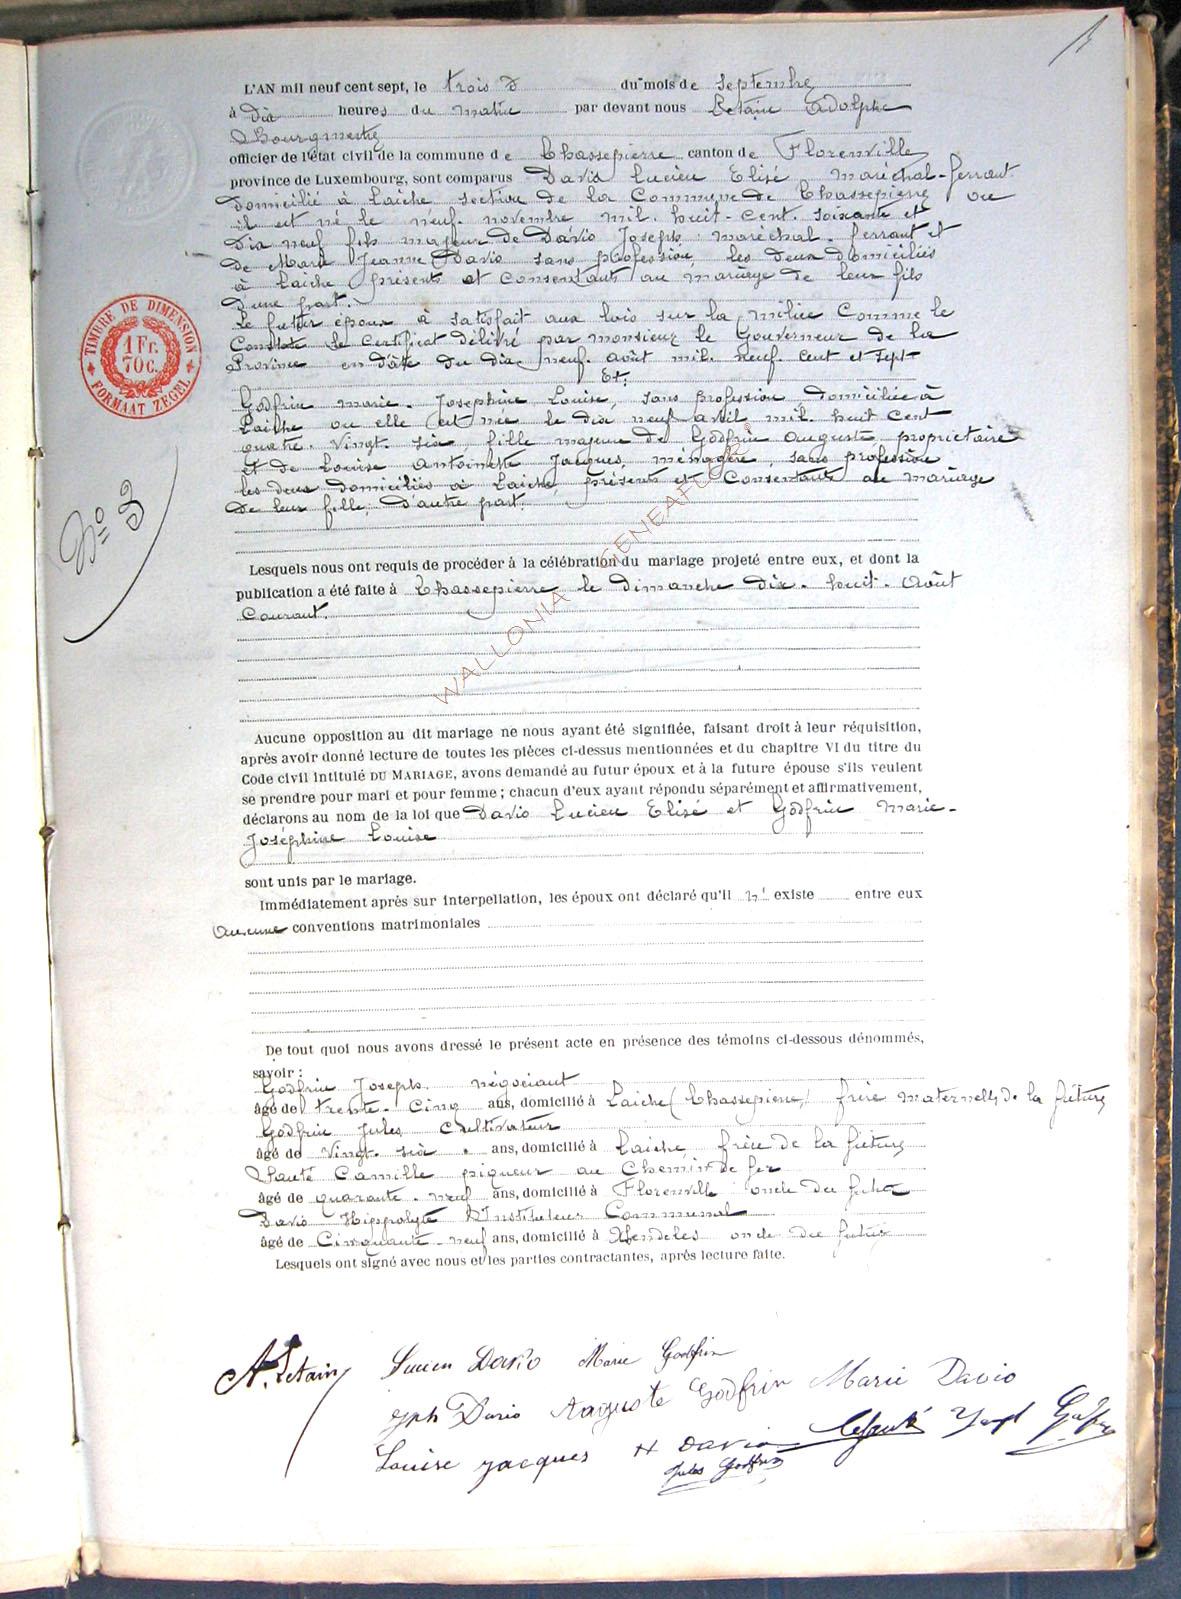 L'AN mil neuf cent sept, le trois du mois de septembre
à dix heures du matin par devant nous Letain Adolphe
Bourgmestre
officier de l'état civil de la commune de Chassepierre canton de Florenville
province de Luxembourg, sont comparus David Lucien Elisé maréchal-ferrant
domicilié à Laiche section de la Commune de Chassepierre où
il est né le neuf novembre mil huit-cent soixante et
dix neuf fils majeur de Davio Joseph maréchal-ferrant et
de Marie Jeanne Davio sans profession, les deux domiciliés
à Laiche présents et consentants au mariage de leur fils
d'une part.
Le futur époux à satisfait aux lois sur la milice comme le
Constate le Certificat délivré par monsieur le Gouverneur de la
Province en date du dix neuf août mil neuf cent et sept
Et:
Godfrin Marie-Josephine Louise, sans profession domiciliée à
Laiche ou elle est née le dix neuf avril mil huit cent
quatre-vingt-six, fille majeure de Godfrin Auguste propriétaire
et de Louise Antoinette Jacques, ménagère, sans profession
les deux domiciliés à Laiche, présents et Consentants au mariage
de leur fille, d'autre part.
TIMBRE DE DIMENSION
1 Fr. 70c.
FORMAAT ZEGEL
N° 9
Lesquels nous ont requis de procéder à la célébration du mariage projeté entre eux, et dont la
publication a été faite à Chassepierre le dimanche dix-huit Août
Courant.
WALLONIA GENEAFLOR
Aucune opposition au dit mariage ne nous ayant été signifiée, faisant droit à leur réquisition,
après avoir donné lecture de toutes les pièces ci-dessus mentionnées et du chapitre VI du titre du
Code civil intitulé DU MARIAGE, avons demandé au futur époux et à la future épouse s'ils veulent
se prendre pour mari et pour femme ; chacun d'eux ayant répondu séparément et affirmativement,
déclarons au nom de la loi que Davio Lucien Elisé et Godfrin Marie-
Joséphine Louise
sont unis par le mariage.
Immédiatement après sur interpellation, les époux ont déclaré qu'il n' existe entre eux
aucune conventions matrimoniales
De tout quoi nous avons dressé le présent acte en présence des témoins ci-dessous dénommés,
savoir :
Godfrin Joseph négociant
âgé de trente-cinq ans, domicilié à Laiche (Chassepierre) frère maternel de la future
Godfrin Jules Cultivateur
âgé de vingt-six ans, domicilié à Laiche, frère de la future
Camille piqueur au Chemin de fer
âgé de quarante-neuf ans, domicilié à Florenville oncle du futur
Davio Hippolyte Instituteur Communal
âgé de Cinquante-neuf ans, domicilié à oncle du futur
Lesquels ont signé avec nous et les parties contractantes, après lecture faite.
A. Letain Lucien Davio Marie Godfrin
Jph Davio Auguste Godfrin Marie Davio
Louise Jacques H Davio Joseph Godfrin
Jules Godfrin